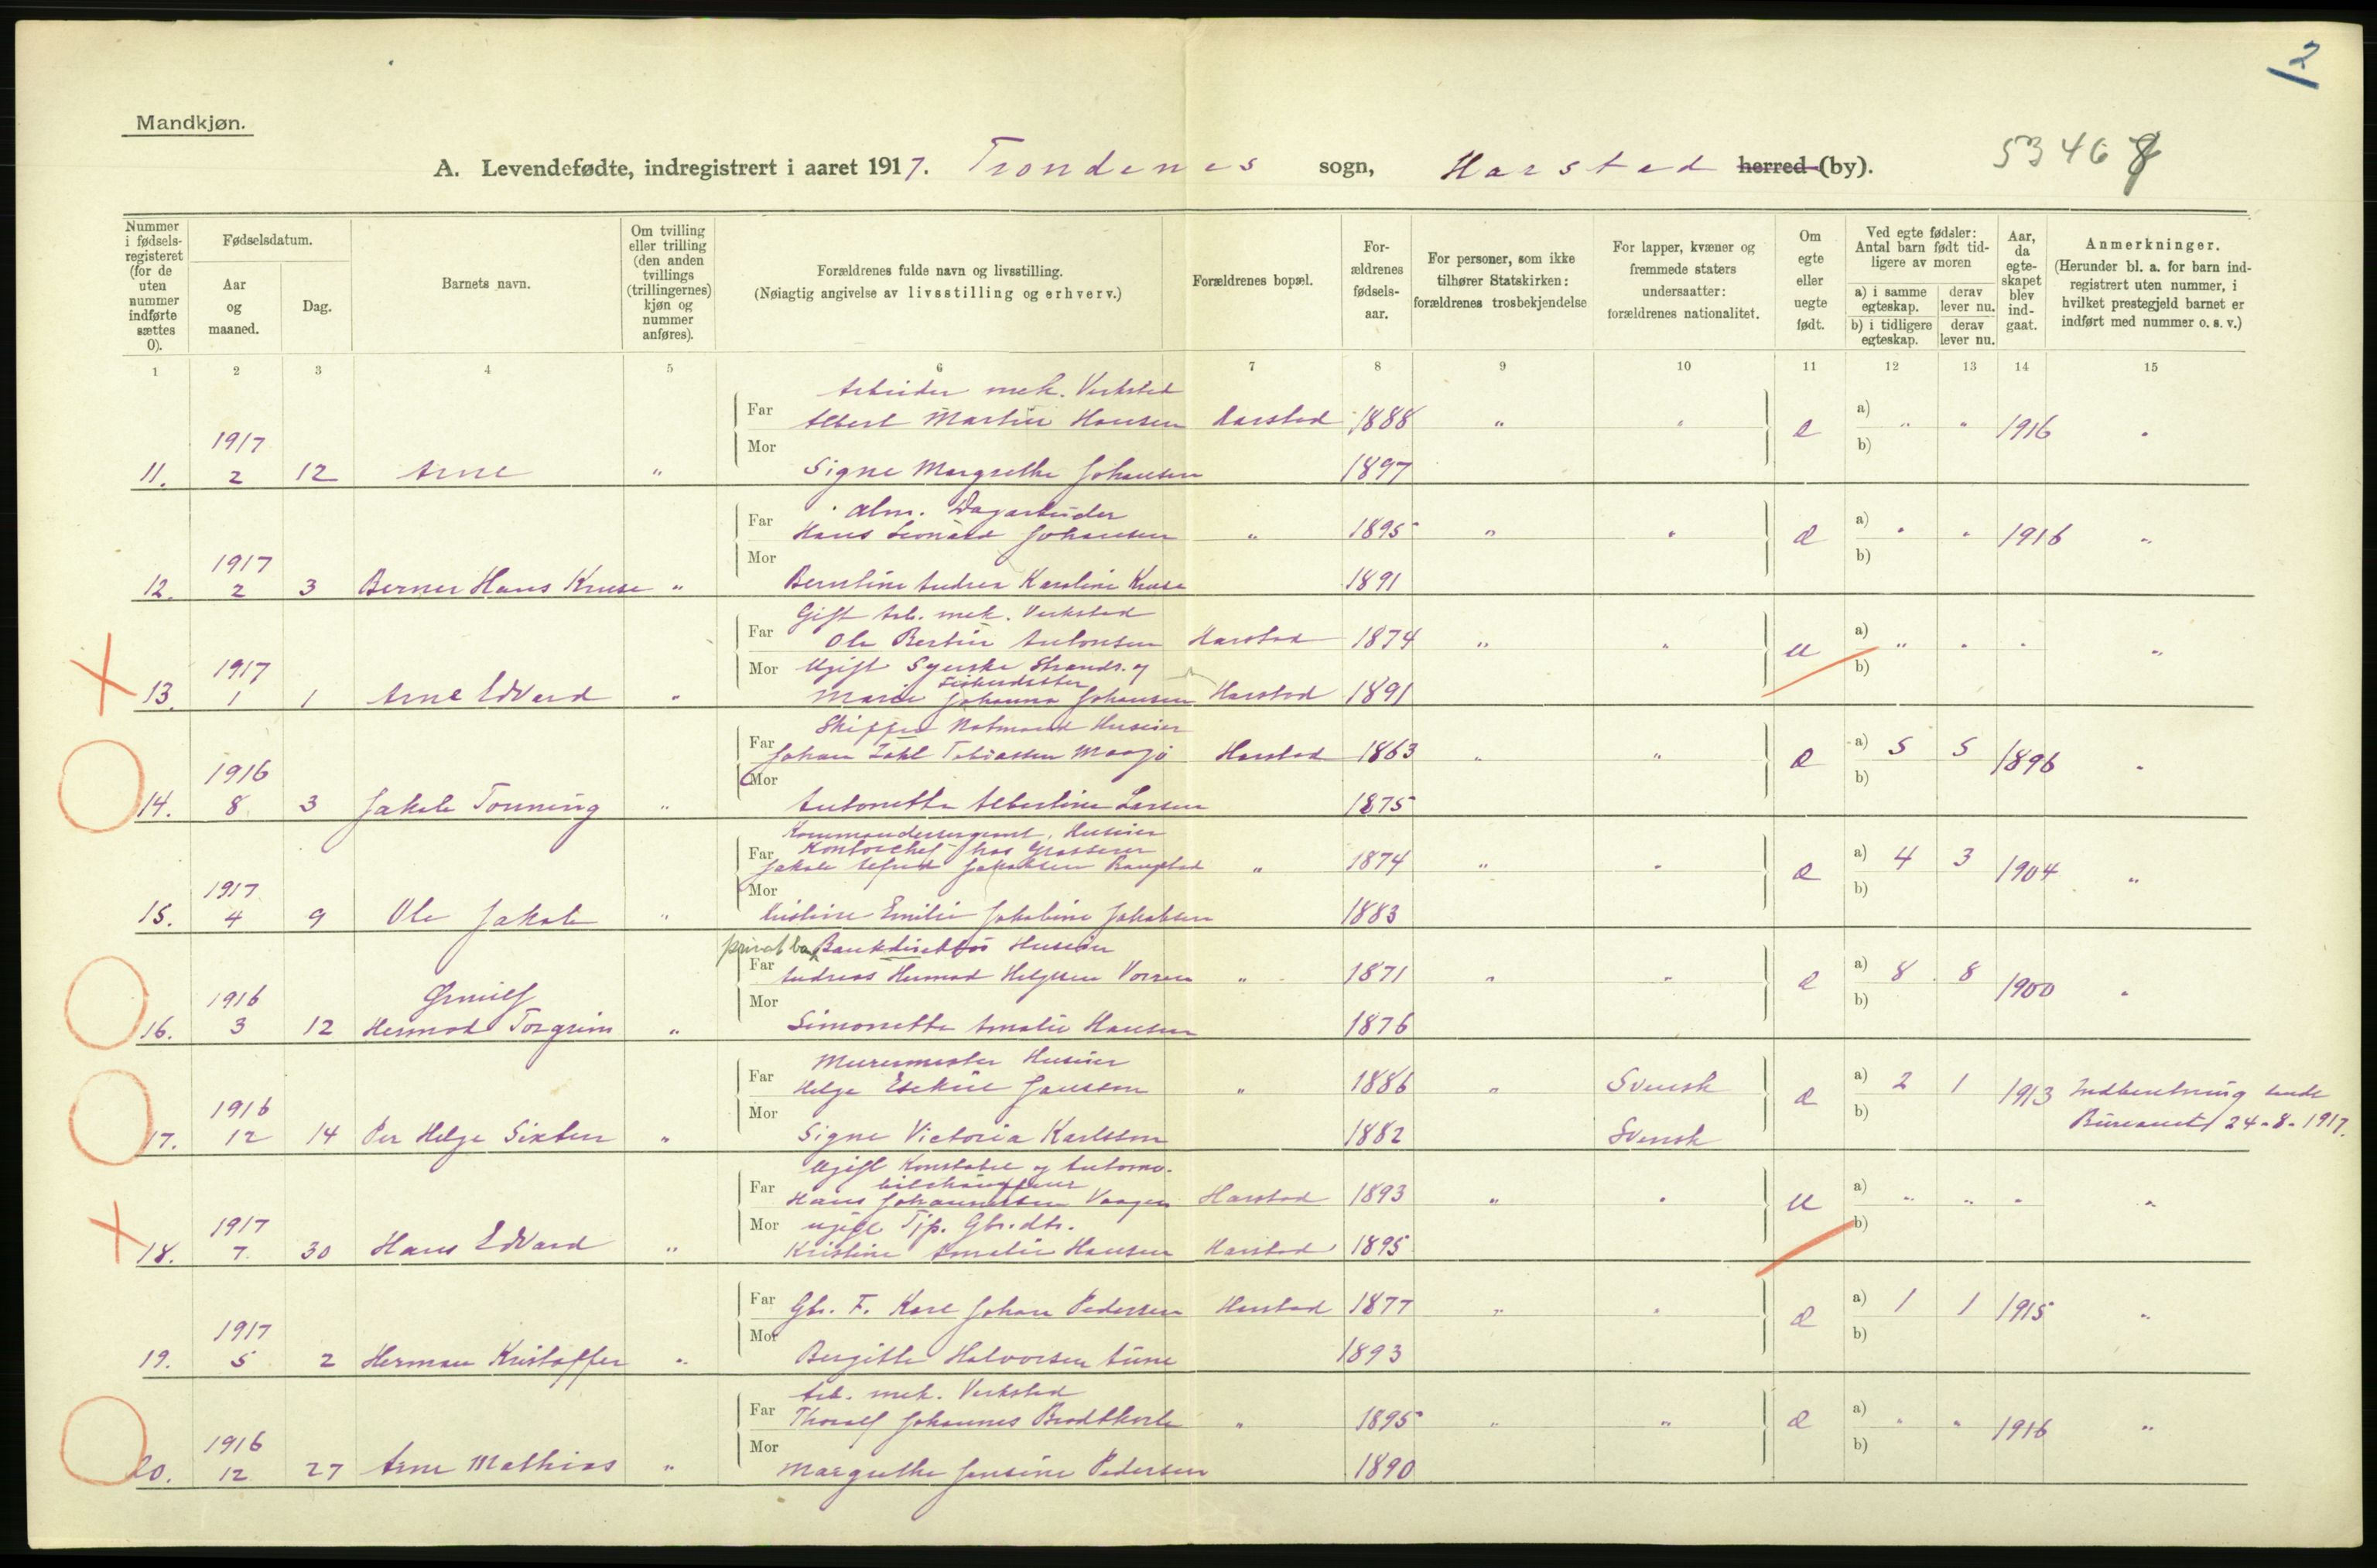 2
Mandkjøn.
A. Levendefødte, indregistrert i aaret 1917. Trondenes sogn, Harstad herred (by). 53467
Nummer i fødselsregisteret (for de uten nummer indførte sættes 0).
Fødselsdatum.
Aar og maaned.
Dag.
Barnets navn.
Om tvilling eller trilling (den anden tvillings (trillingernes) kjøn og nummer anføres).
Forældrenes fulde navn og livsstilling.
(Nøiagtig angivelse av livsstilling og erhverv.)
Forældrenes bopæl.
Forældrenes fødselsaar.
For personer, som ikke tilhører Statskirken: forældrenes trosbekjendelse
For lapper, kvæner og fremmede staters undersaatter: forældrenes nationalitet.
Om egte eller uegte født.
Ved egte fødsler: Antal barn født tidligere av moren
a) i samme egteskap. derav lever nu.
b) i tidligere egteskap. derav lever nu.
Aar, da egteskapet blev indgaat.
Anmerkninger.
(Herunder bl. a. for barn indregistrert uten nummer, i hvilket prestegjeld barnet er indført med nummer o. s. v.)
1 2 3 4 5 6 7 8 9 10 11 12 13 14 15
Arbeider mek. Verksted
Far Albert Martin Hansen Harstad 1888 " " e a) " " 1916 "
1917 Mor b)
11. 2 12 Arne " Signe Margrethe Johansen 1897
alm. Dagarbeider
Far Hans Leonard Johansen " 1895 " " e a) " " 1916 "
1917 Mor b)
12. 2 3 Berner Hans Kruse " Berntine Andrea Karoline Kruse 1891
Gift Arb. mek. Verksted
Far Ole Bertin Antonsen Harstad 1874 " " u a) " " " "
1917 Mor Ugift Syerske Strands. og b)
Fiskerdatter
13. 1 1 Arne Edvard " Marie Johanna Johansen Harstad 1891
Skipper Notmand Huseier
Far Johan Zahl Tobiassen Maasjø Harstad 1863 " " e a) 5 5 1896 "
1916 Mor b)
14. 8 3 Jakob Tonning " Antonette Albertine Larsen 1875
Kommandersergeant, Huseier
Kontorchef hos Grosserer
Far Jakob Alfred Jakobsen Bangstad " 1874 " " e a) 4 3 1904 "
1917 Mor b)
15. 4 9 Ole Jakob " Kristine Emilie Jakobine Jakobsen 1883
privat ba Bankdirektør Huseier
Far Andreas Hermod Helgesen Vorren " 1871 " " e a) 8 8 1900 "
1916 Mor b)
16. 3 12 Hermod Torgrim " Simonette Amalie Hansen 1876
Murermester Huseier
Far Helge Esekiel Jansson " 1886 " Svensk e a) 2 1 1913 Indberetning sendt
1916 Mor b) Bureauet 24-8-1917.
17. 12 14 Per Helge Sixten " Signe Victoria Karlsson 1882 Svensk
Ugift Konstabel og Automo-
bilchauffeur
Far Hans Johannessen Vaagen Harstad 1893 " " u a) " " " "
1917 Mor ugift Tjp. Gbr.dtr. b)
18. 7 30 Hans Edvard " Kristine Amalie Hansen Harstad 1895
Far Gbr. F. Karl Johan Pedersen Harstad 1877 " " e a) 1 1 1915 "
1917 Mor b)
19. 5 2 Herman Kristoffer " Bergitte Halvorsen Aune 1893
Arb. mek. Verksted
Far Thoralf Johannes Brodtkorb " 1895 " " e a) " " 1916 "
1916 Mor b)
20. 12 27 Arne Mathias " Margrethe Jensine Pedersen 1890